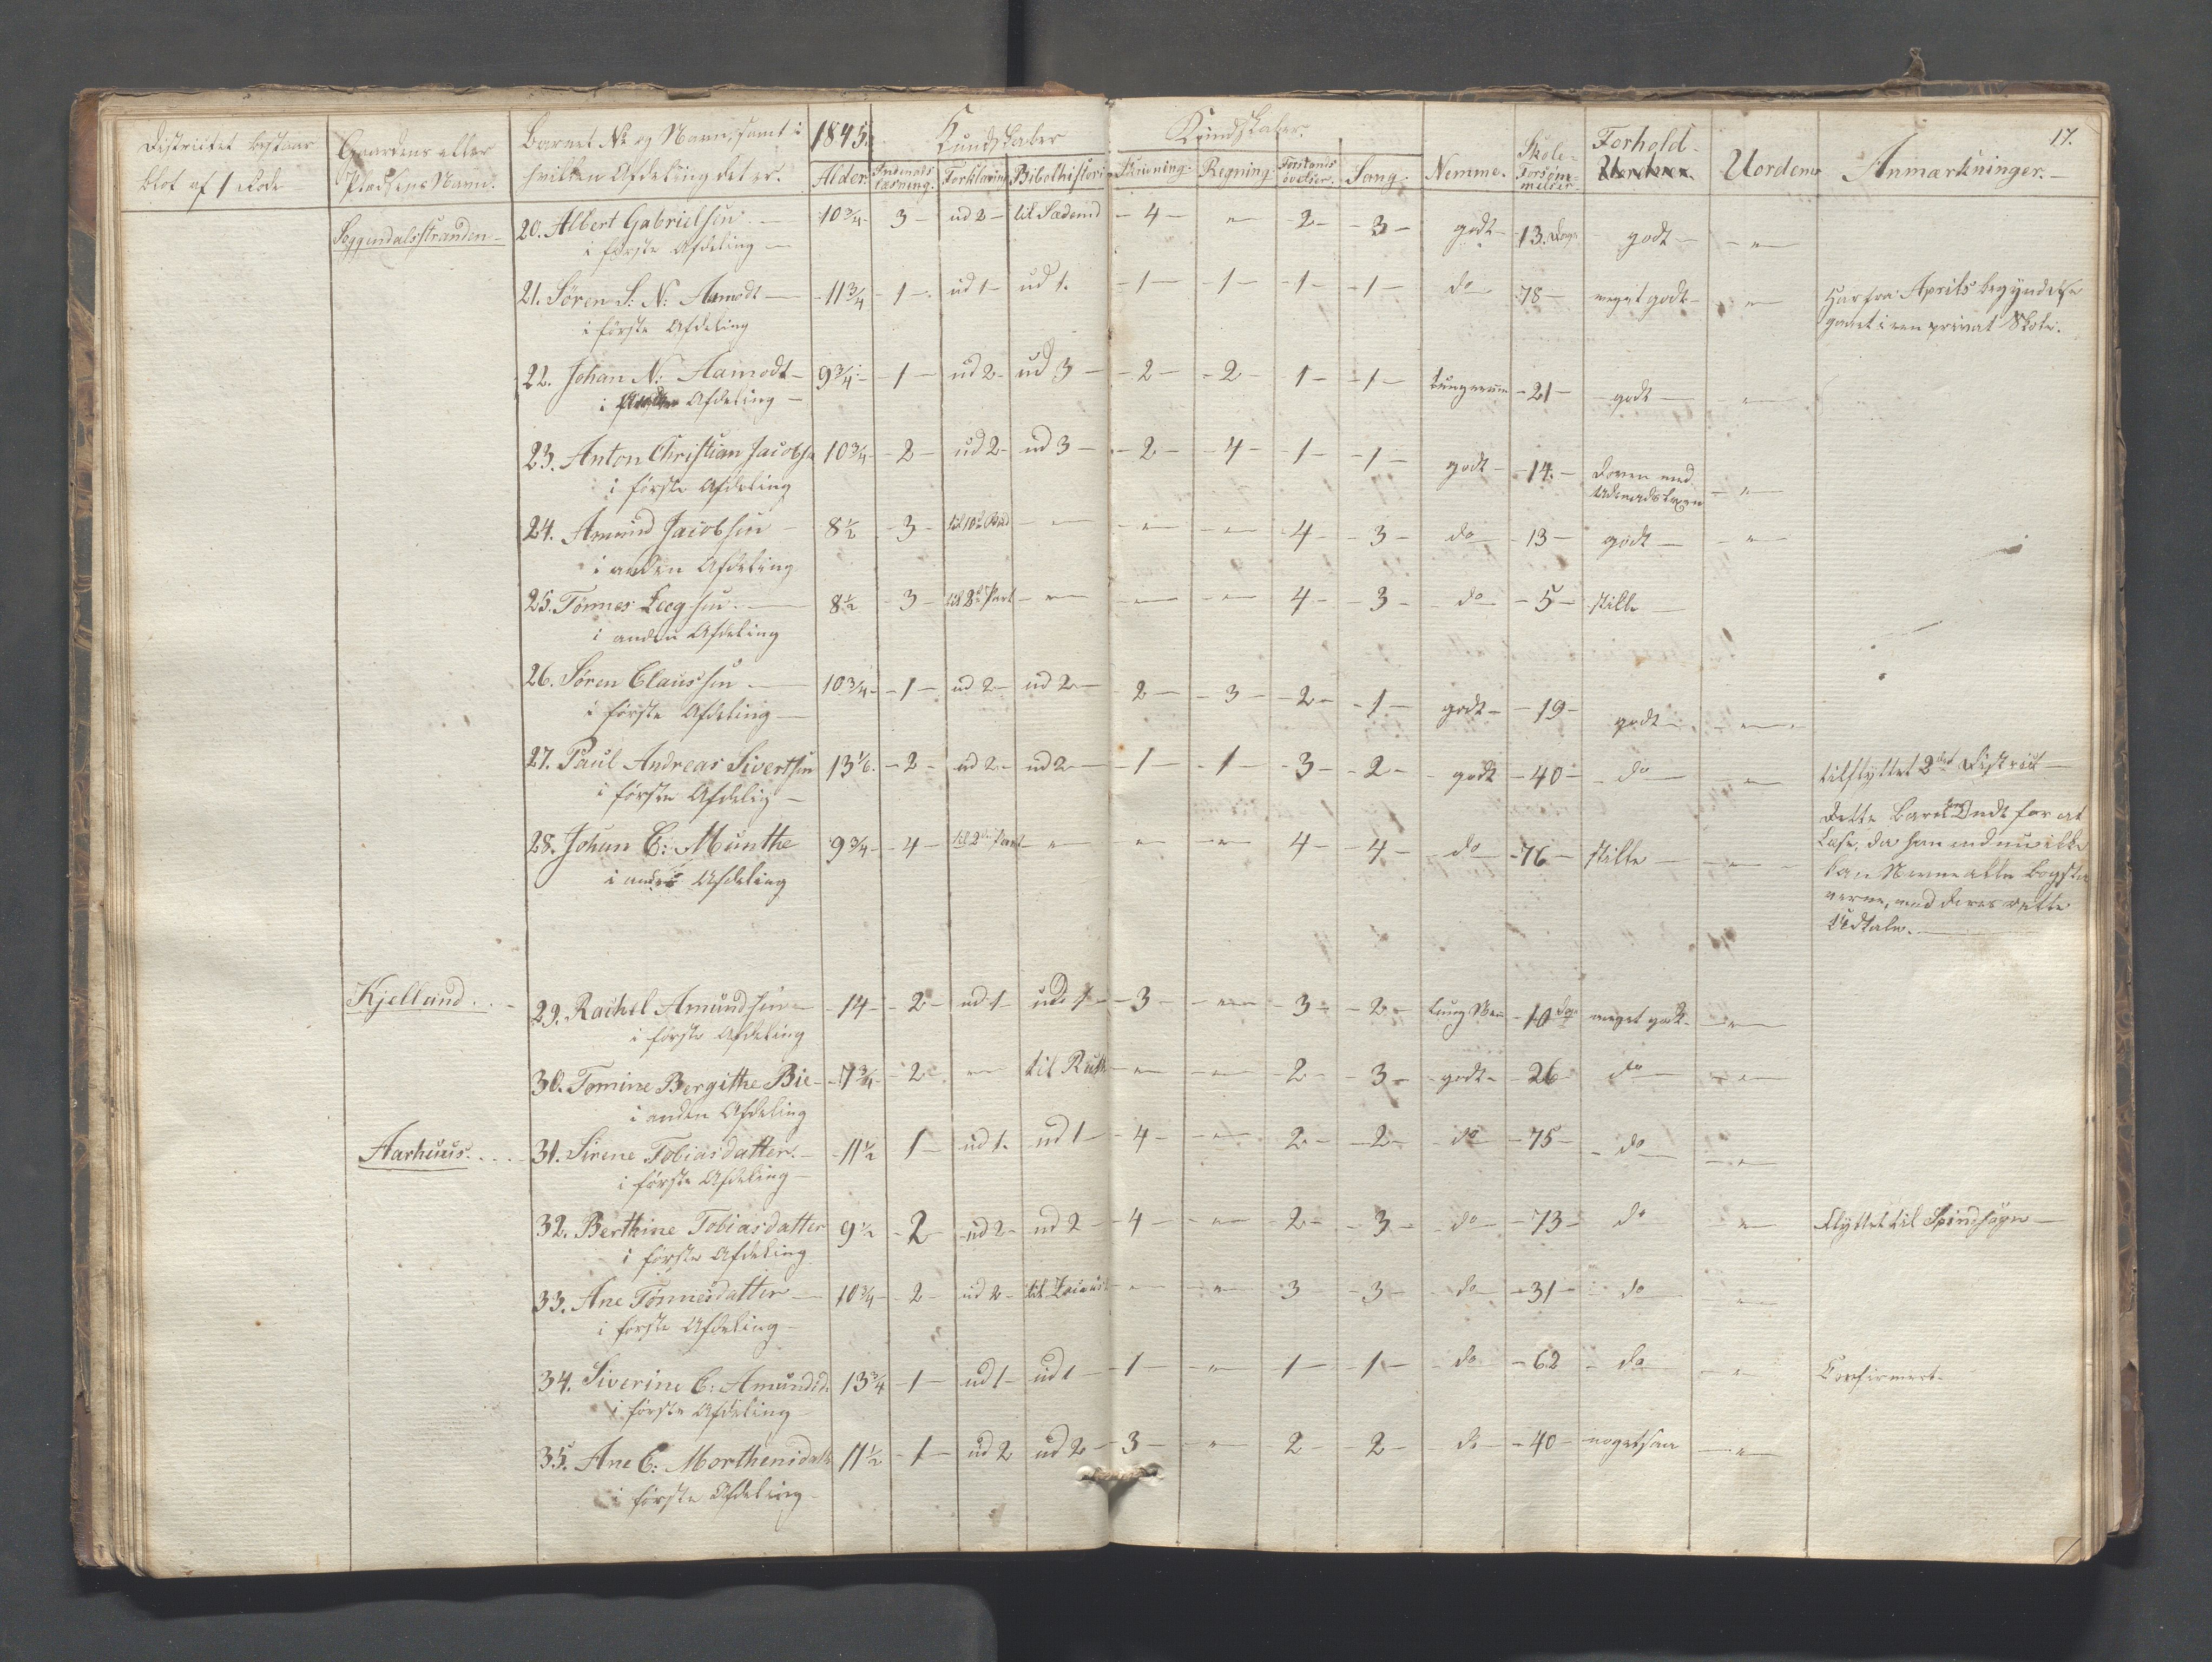 17.
Districtet bestaar blot af 1 Rode
Gaardens eller Pladsens Navn.
Barnets No og Navn, samt i hvilken Afdeling det er.
1845.
Alder.
Kundskaber
Indenads læsning. Forklaring Bibelhistori
Kundskaber.
Skrivning. Regning. Forstands øvelser. Sang.
Nemme.
Skole-Forsømmelser.
Forhold.
Uorden
Anmærkninger.
Soggendalsstranden
20. Albert Gabrielsen 10 3/4 3 ud 2 - 4 - " - 2 - 3 - godt 13. Dage godt - " -
i første Afdeling
21. Søren S: N: Aamodt 11 3/4 - 1 - ud 1 ud 1. - 1 - 1 - 1 - 1 - do 78 - meget godt - " Har fra Aprils begyndelse
i første Afdeling gaaet i en privat Skole.
22. Johan N: Aamodt - 9 3/4 - 1 - ud 2 - ud 3 - 2 - 2 - 1 - 1 - tungnem - 21 - godt - "
i Afdeling
23. Anton Christian Jacobsen 10 3/4 - 2 - ud 2 - ud 3 - 2 - 4 - 1 - 1 - godt - 14. - Doven med
i første Afdeling Udenadslæxen - "
24. Amund Jacobsen 8 1/2 - 3 - til 10de Bud - " - " - " - 4 - 3 - do 13 - godt - "
i anden Afdeling
25. Tønnes Leegsen. 8 1/2 - 3 - til 2den Part - " - " - " 4 - 3 - do - 5 - stille -
i anden Afdeling
26. Søren Claussen 10 3/4 - 1 - ud 2 - ud 2 - 2 - 3 - 2 - 1 - godt - 19 - godt - "
i første Afdeling
27. Paul Andreas Sivertsen 13 1/6. - 2 - ud 2 - ud 2 - 1 - 1 - 3 - 2 - godt - 40 - do - " tilflyttet 2det District
i første Afdelig
28. Johan C: Munthe 9 3/4 - 4 - til 2den Part - " - " - " 4 - 4 - do - 76 - stille - "
i anden Afdeling
Dette Barn har Ondt for at
Læse, da han endnu ikke
kan Nævne alle Bogsta
verne, med deres rette
Udtale.
Kjelland
29. Rachel Amundsen - 14 - 2 - ud 1 - ud 1 - 3 - " - 3 - 2 - tung Nem - 10 Dage meget godt - "
i første Afdeling
30. Tomine Bergithe Bie - 7 3/4 - 2 - " til Ruth - " - " - 2 - 3 - godt - 26 do - "
i anden Afdeling
Aarhuus
31. Sirene Tobiasdatter. - 11 1/2 1 - ud 1. ud 1 - 4 - " - 2 - 2 - do - 75 - do - "
i første Afdeling
32. Berthine Tobiasdatter 9 1/2 - 2 - ud 2 - ud 2 - 4 - " - 2 - 3 - do - 73 - do " Flyttet til
i første Afdeling
33. Ane Tønnesdatter 10 3/4 - 2 - ud 2 - - " - " 3 - 3 - do - 31 - do - "
i første Afdeling
34. Siverine C: Amundsd. 13 3/4 - 1 - ud 1 - ud 1 - 1 - " - 1 - 1 - do - 62 - do - " Confirmert.
i første Afdeling
35. Ane C: Morthensdatt 11 1/2 - 1 - ud 2 ud 2 - 3 - " 2 - 2 - do - 40 - nogetsaa - "
i første Afdeling